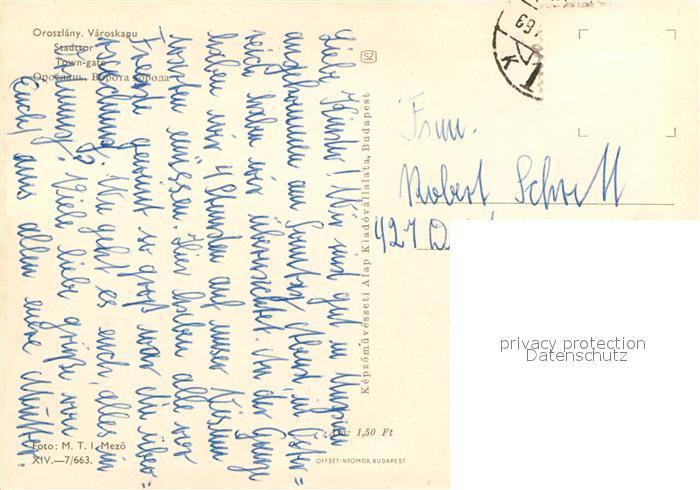 Oroszlány. Városkapu
Stadttor
Town-gate
Орослань. Ворота города
Liebe Kinder! Wir sind gut in Ungarn
angekommen am Samstag Abend in Öster
reich haben wir übernachtet. An der Grenze
haben wir 4 Stunden auf unser Visum
warten müssen. Hier haben alle vor
Freude geweint so groß war die Über
raschung. Wie geht es euch, alles in
Ordnung? Viele liebe Grüße von
Euch aus allem eure Mutter
Foto: M. T. I. Mező
XIV.—7/663.
SZ
Képzőművészeti Alap Kiadóvállalata, Budapest
Ára: 1,50 Ft
OFFSET-NYOMDA, BUDAPEST
69
Fam.
Robert Schrett
427 D
privacy protection
Datenschutz